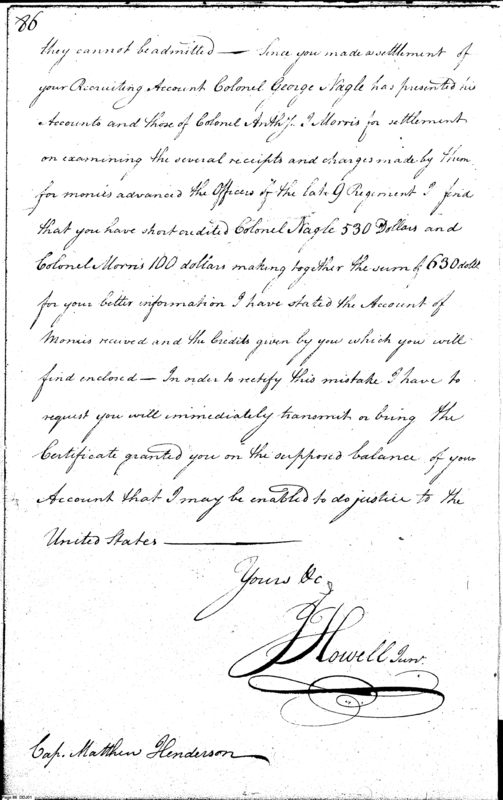 86
they cannot be admitted — Since you made a settlement of
your Recruiting Account Colonel George Nagle has presented his
Accounts and those of Colonel Anthy. J Morris for settlement
on examining the several receipts and charges made by them
for monies advanced the Officers of the late 9 Regiment I find
that you have short credited Colonel Nagle 530 Dollars and
Colonel Morris 100 dollars making together the sum of 630 dolls.
for your better information I have stated the Account of
Monies received and the Credits given by you which you will
find enclosed — In order to rectify this mistake I have to
request you will immediately transmit or bring the
Certificate granted you on the supposed balance of your
Account that I may be enabled to do justice to the
United States —
Yours &c
J Howell Junr.
Cap. Matthew Henderson